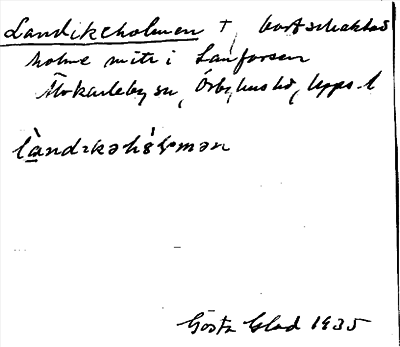 Landikeholmen †, bortschaktad
holme mitt i Lanforsen
Älvkarleby sn, Örbyhus hd, Upps. l
làndıkəhólmən
Gösta Glad 1935